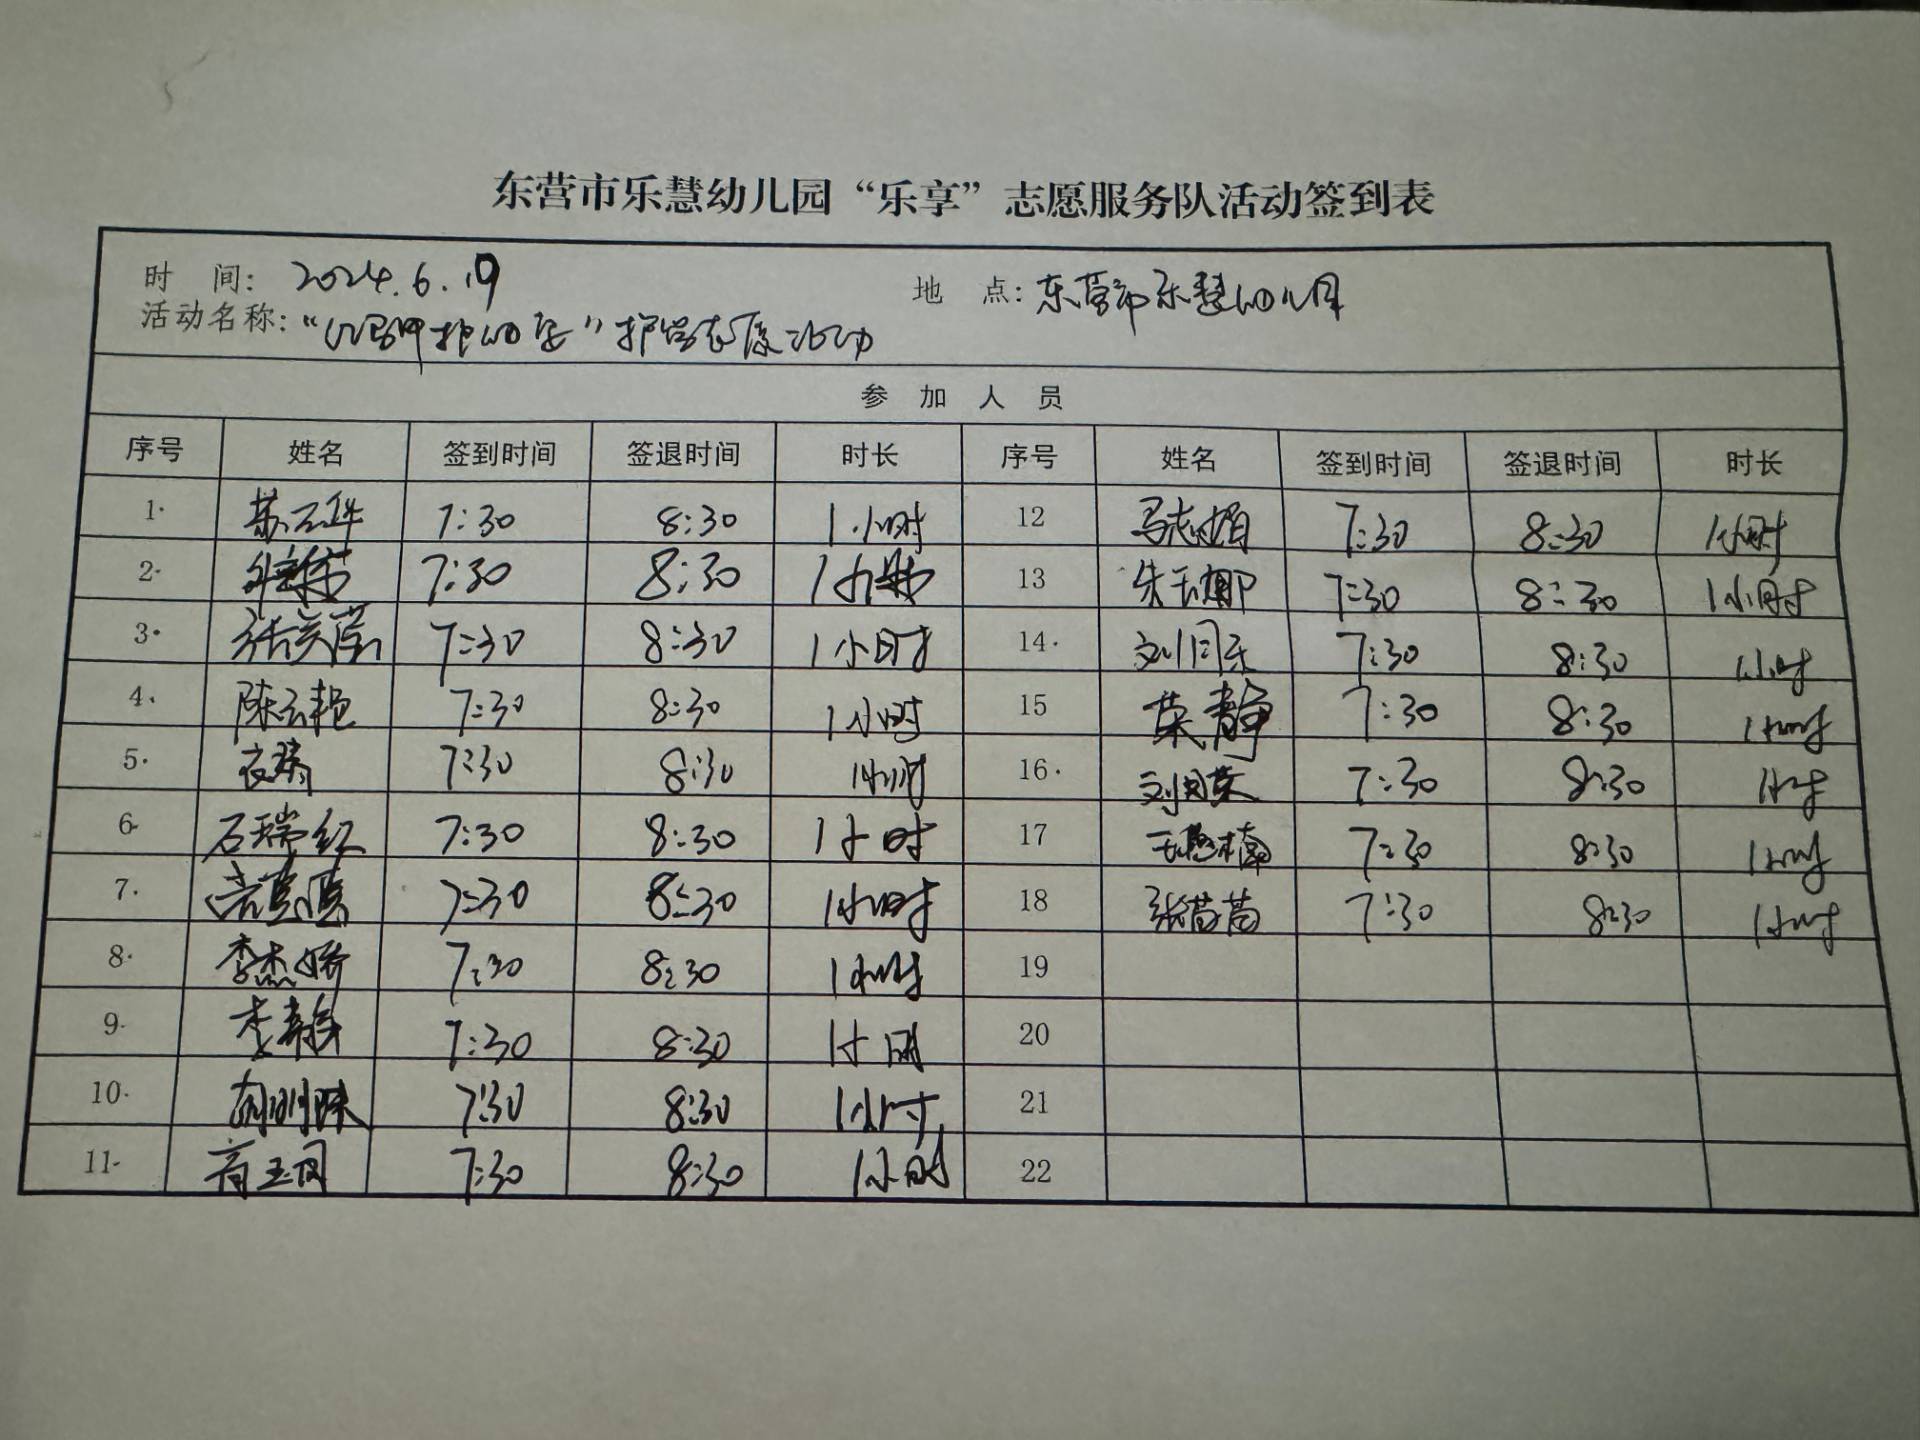 东营市乐慧幼儿园“乐享”志愿服务队活动签到表
时 间: 2024.6.19 地 点: 东营市乐慧幼儿园
活动名称: 护学志愿活动
参 加 人 员
序号 姓名 签到时间 签退时间 时长 序号 姓名 签到时间 签退时间 时长
1. 7:30 8:30 1小时 12 7:30 8:30 1小时
2. 7:30 8:30 1小时 13 朱玉娜 7:30 8:30 1小时
3. 7:30 8:30 1小时 14. 7:30 8:30 1小时
4. 陈云艳 7:30 8:30 1小时 15 荣静 7:30 8:30 1小时
5. 7:30 8:30 1小时 16. 7:30 8:30 1小时
6. 石瑞红 7:30 8:30 1小时 17 7:30 8:30 1小时
7. 7:30 8:30 1小时 18 张苗苗 7:30 8:30 1小时
8. 李杰娇 7:30 8:30 1小时 19
9. 7:30 8:30 1小时 20
10. 7:30 8:30 1小时 21
11. 7:30 8:30 1小时 22